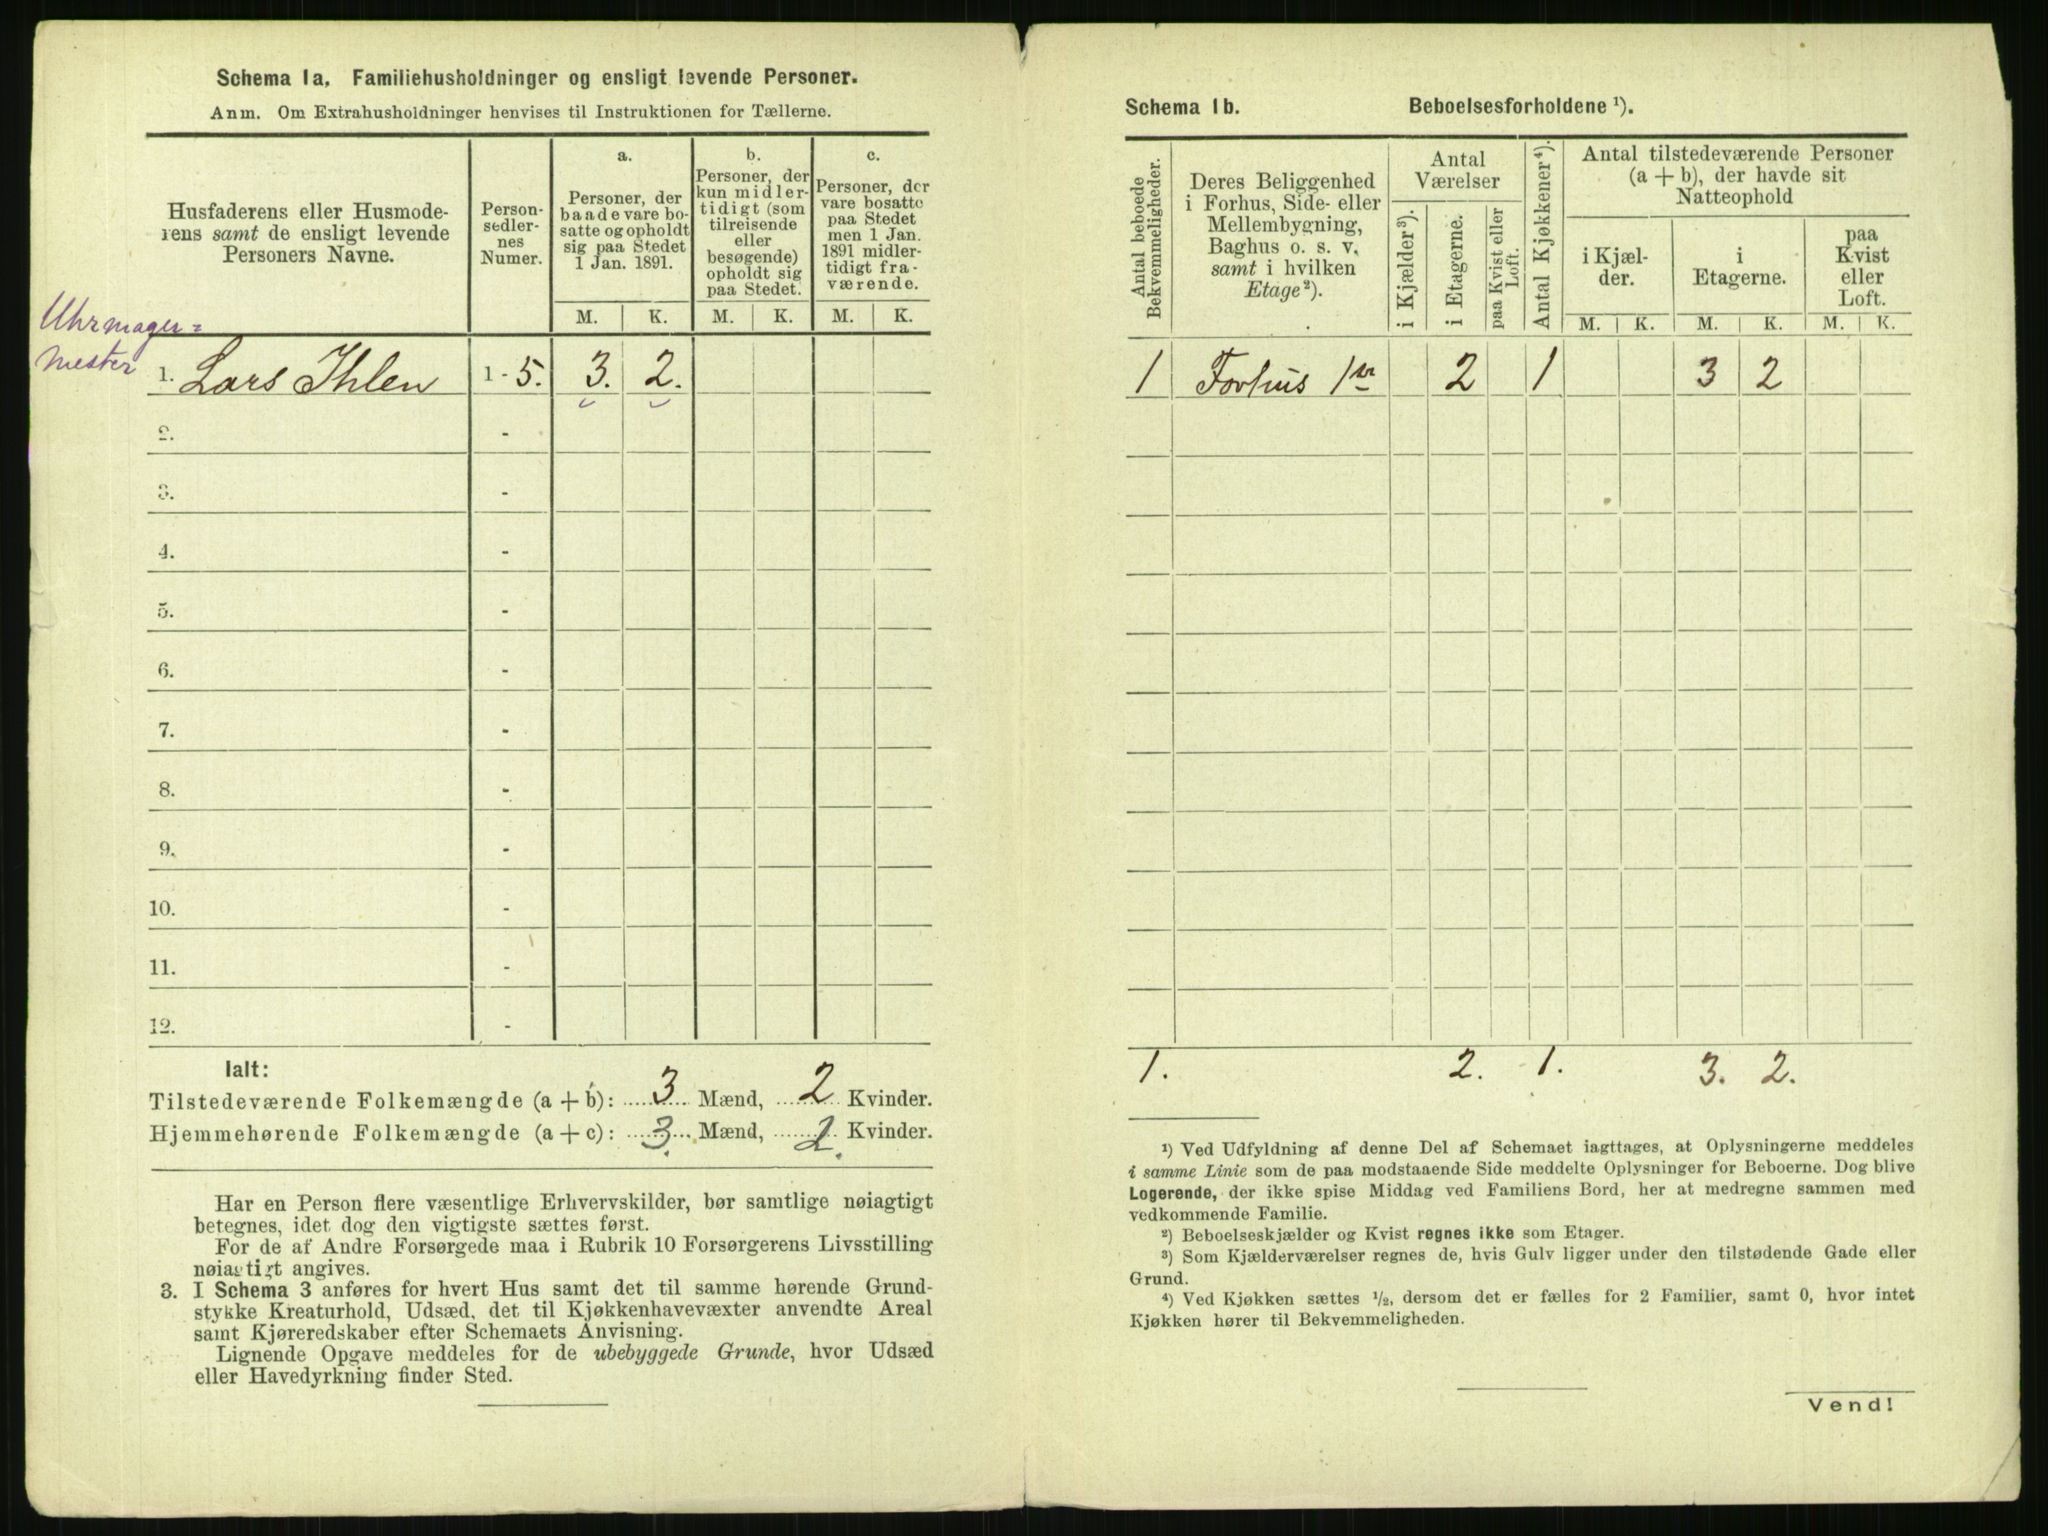 Schema 1a. Familiehusholdninger og ensligt levende Personer.
Anm. Om Extrahusholdninger henvises til Instruktionen for Tællerne.
Husfaderens eller Husmode-
rens samt de ensligt levende
Personers Navne.
Person-
sedler-
nes
Numer.
a.
Personer, der
baade vare bo-
satte og opholdt
sig paa Stedet
1 Jan. 1891.
b.
Personer, der
kun midler-
tidigt (som
tilreisende
eller
besøgende)
opholdt sig
paa Stedet.
c.
Personer, der
vare bosatte
paa Stedet
men 1 Jan.
1891 midler-
tidigt fra-
værende.
M. K. M. K. M. K.
Uhrmager=
mester
1. Lars Ihlen 1 - 5. 3. 2.
2. -
3. -
4. -
5. -
6. -
7. -
8. -
9. -
10. -
11. -
12. -
Ialt:
Tilstedeværende Folkemængde (a + b): 3 Mænd, 2 Kvinder.
Hjemmehørende Folkemængde (a + c): 3. Mænd, 2. Kvinder.
Har en Person flere væsentlige Erhvervskilder, bør samtlige nøiagtigt
betegnes, idet dog den vigtigste sættes først.
For de af Andre Forsørgede maa i Rubrik 10 Forsørgerens Livsstilling
nøiagtigt angives.
3. I Schema 3 anføres for hvert Hus samt det til samme hørende Grund-
stykke Kreaturhold, Udsæd, det til Kjøkkenhavevæxter anvendte Areal
samt Kjøreredskaber efter Schemaets Anvisning.
Lignende Opgave meddeles for de ubebyggede Grunde, hvor Udsæd
eller Havedyrkning finder Sted.
Schema 1b. Beboelsesforholdene ¹).
Antal beboede
Bekvemmeligheder.
Deres Beliggenhed
i Forhus, Side- eller
Mellembygning,
Baghus o. s. v.
samt i hvilken
Etage ²).
Antal
Værelser
i Kjælder ³).
i Etagerne.
paa Kvist eller
Loft.
Antal Kjøkkener ⁴).
Antal tilstedeværende Personer
(a + b), der havde sit
Natteophold
i Kjæl-
der.
i
Etagerne.
paa
Kvist
eller
Loft.
M. K. M. K. M. K.
1 Forhus 1ste 2 1 3 2
1. 2. 1. 3. 2.
¹) Ved Udfyldning af denne Del af Schemaet iagttages, at Oplysningerne meddeles
i samme Linie som de paa modstaaende Side meddelte Oplysninger for Beboerne. Dog blive
Logerende, der ikke spise Middag ved Familiens Bord, her at medregne sammen med
vedkommende Familie.
²) Beboelseskjælder og Kvist regnes ikke som Etager.
³) Som Kjælderværelser regnes de, hvis Gulv ligger under den tilstødende Gade eller
Grund.
⁴) Ved Kjøkken sættes ¹/₂, dersom det er fælles for 2 Familier, samt 0, hvor intet
Kjøkken hører til Bekvemmeligheden.
Vend!